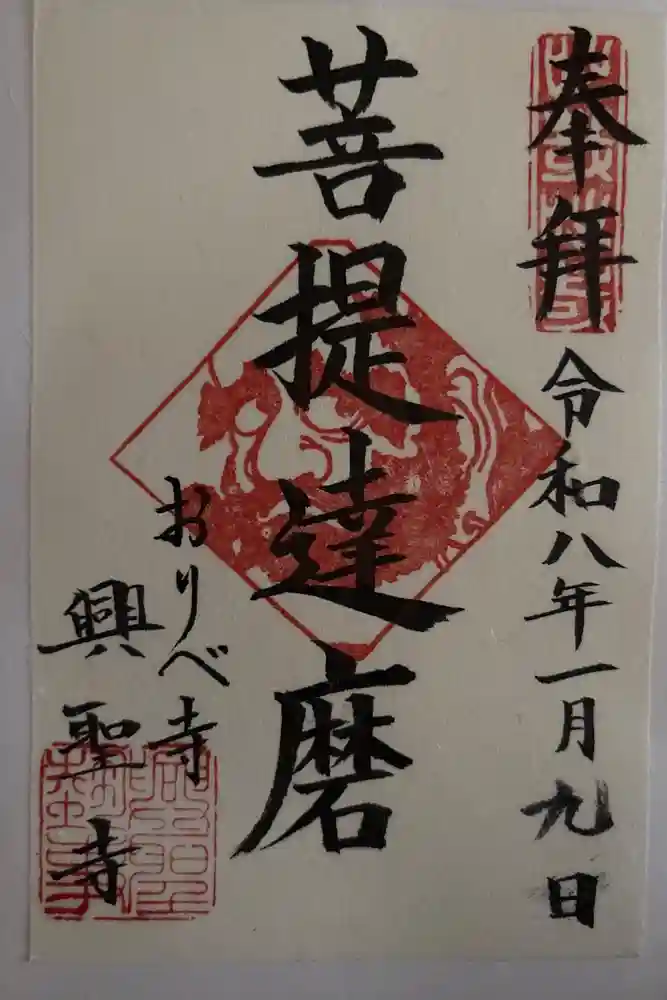 奉拜
令和八年一月九日
菩提達磨
おりべ寺
興聖寺